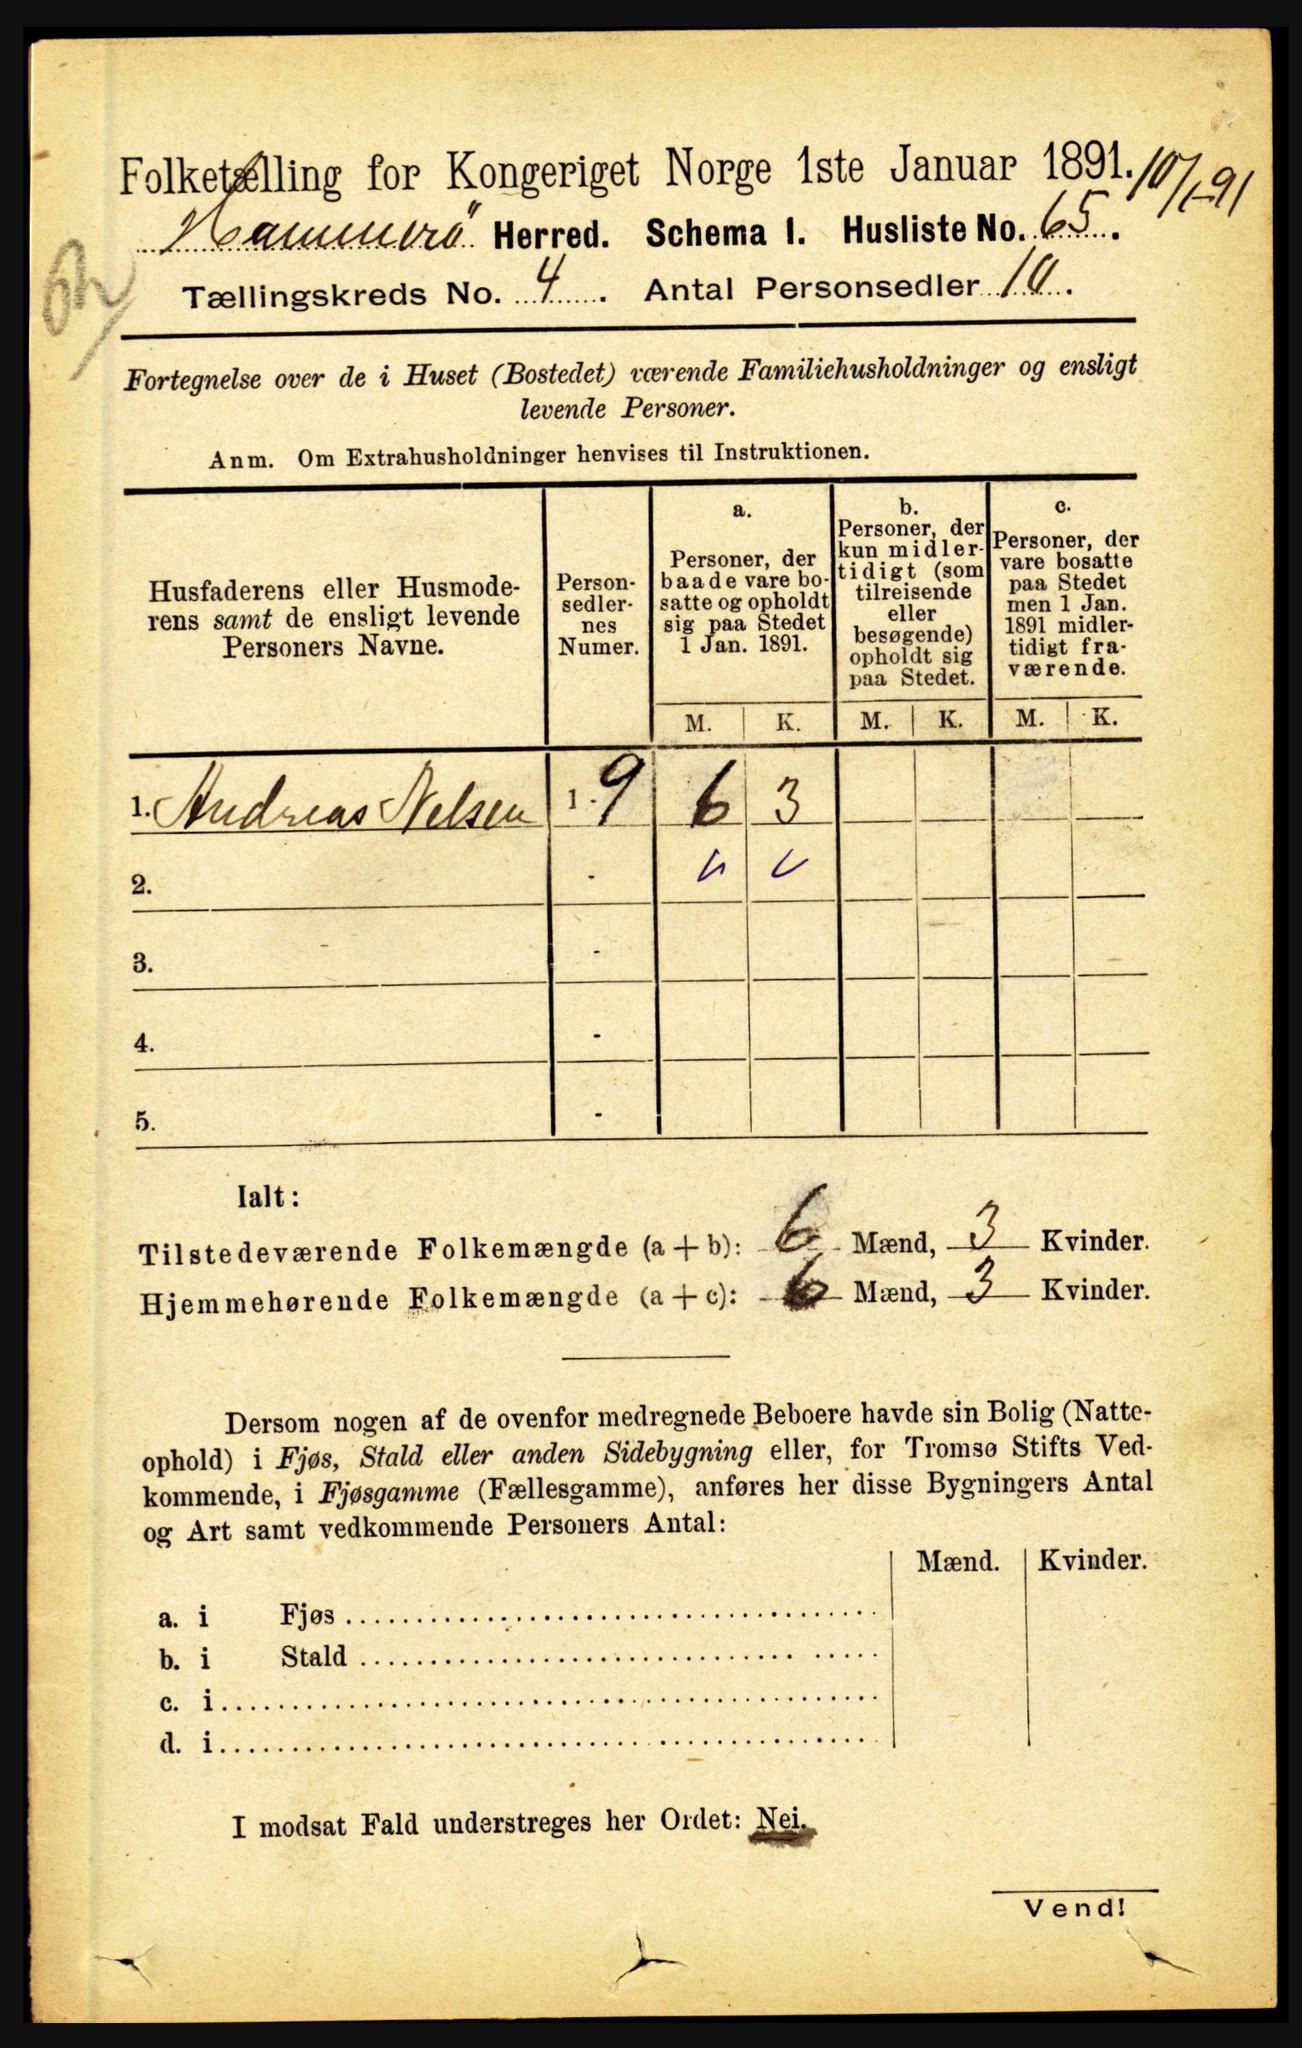 Folketælling for Kongeriget Norge 1ste Januar 1891. 10/1-91
Hammerö Herred. Schema 1. Husliste No. 65.
Tællingskreds No. 4. Antal Personsedler 10.
Fortegnelse over de i Huset (Bostedet) værende Familiehusholdninger og ensligt
levende Personer.
Anm. Om Extrahusholdninger henvises til Instruktionen.
Husfaderens eller Husmode-
rens samt de ensligt levende
Personers Navne.
Person-
sedler-
nes
Numer.
a.
Personer, der
baade vare bo-
satte og opholdt
sig paa Stedet
1 Jan. 1891.
b.
Personer, der
kun midler-
tidigt (som
tilreisende
eller
besøgende)
opholdt sig
paa Stedet.
c.
Personer, der
vare bosatte
paa Stedet
men 1 Jan.
1891 midler-
tidigt fra-
værende.
M. K. M. K. M. K.
1. Andreas Nelsen 1 - 9 6 3
2. -
3. -
4. -
5. -
Ialt:
Tilstedeværende Folkemængde (a + b): 6 Mænd, 3 Kvinder.
Hjemmehørende Folkemængde (a + c): 6 Mænd, 3 Kvinder.
Dersom nogen af de ovenfor medregnede Beboere havde sin Bolig (Natte-
ophold) i Fjøs, Stald eller anden Sidebygning eller, for Tromsø Stifts Ved-
kommende, i Fjøsgamme (Fællesgamme), anføres her disse Bygningers Antal
og Art samt vedkommende Personers Antal:
Mænd. Kvinder.
a. i Fjøs
b. i Stald
c. i
d. i
I modsat Fald understreges her Ordet: Nei.
Vend!